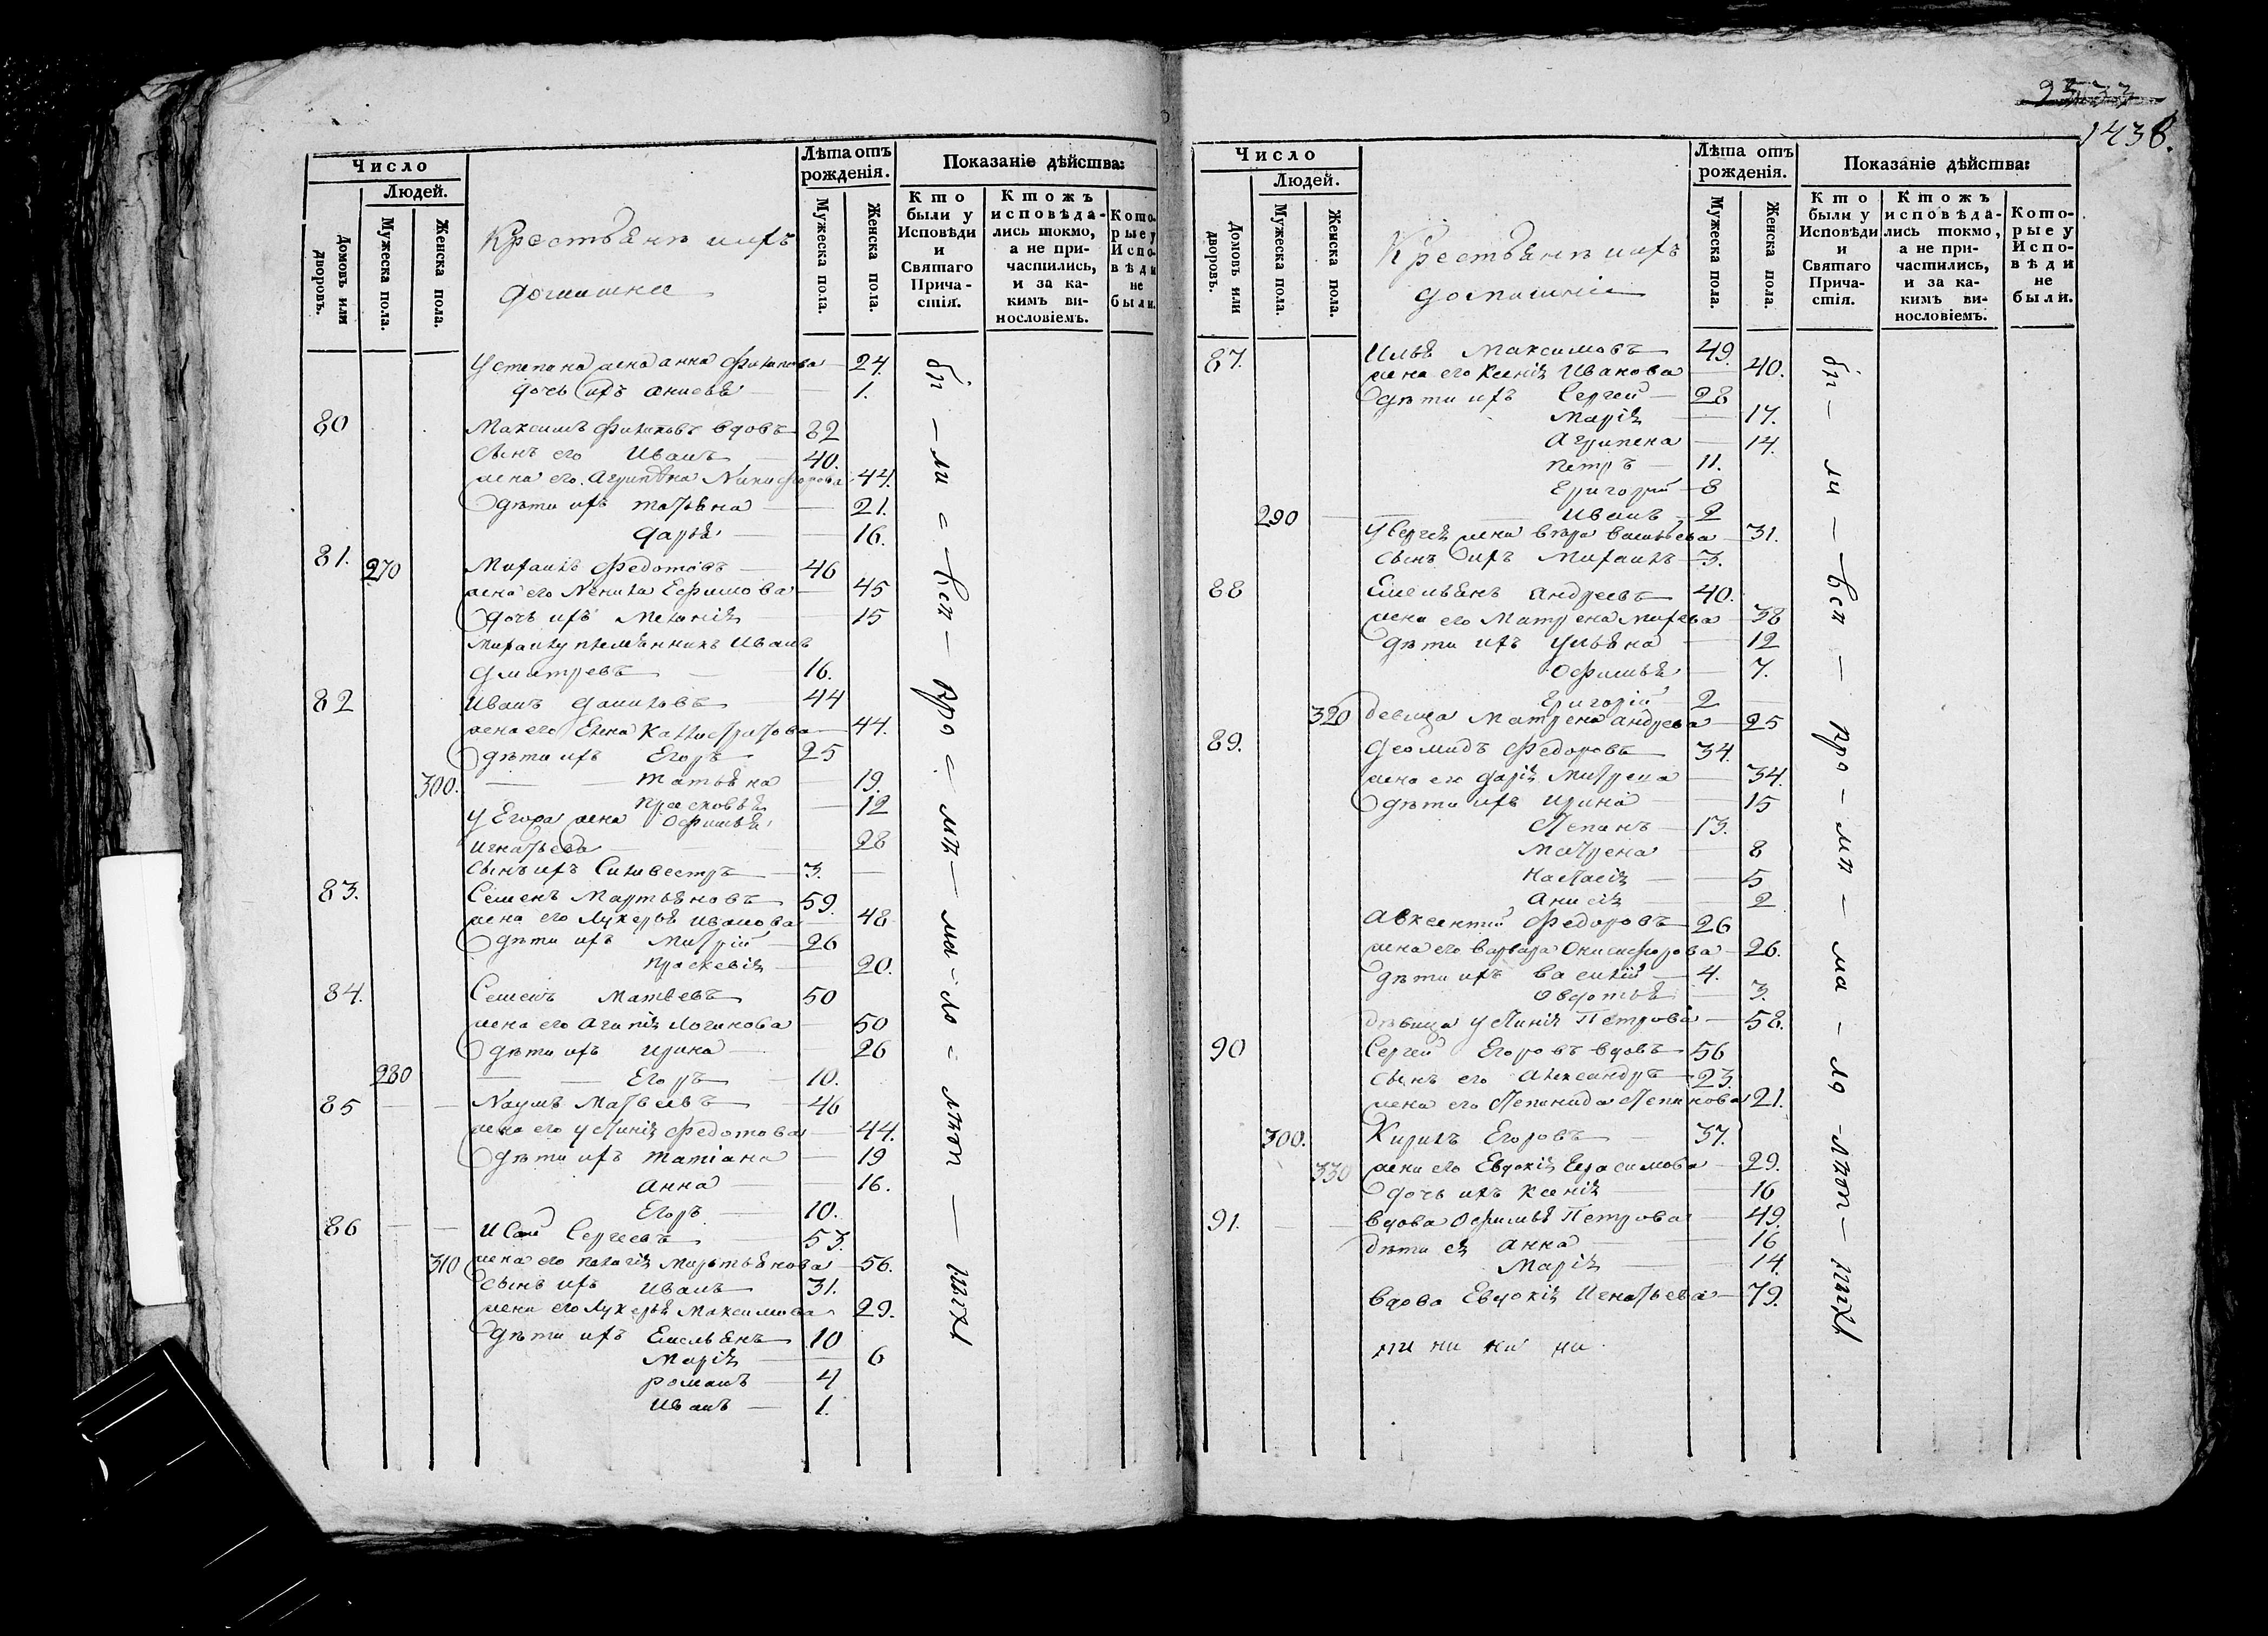 9533
1438.
Число
Людей.
Домовъ или дворовъ.
Мужеска пола.
Женска пола.
Крестьянъ ихъ
домашнее
Лѣта отъ рожденія.
Мужеска пола.
Женска пола.
Показаніе дѣйства:
Кто были у Исповѣди и Святаго Причастія.
Ктожъ исповѣдались токмо, а не причастились, и за какимъ винословіемъ.
Которые у Исповѣди не были.
У степана жена анна Филипова 24.
дочь ихъ анисья 1.
80 Максимъ Филиповъ вдовъ 82
сынъ его Иванъ 40.
жена его Агрипена Никифорова 44.
дѣти ихъ татьяна 21.
дарья 16.
81. 270 Михаилъ Федотовъ 46
жена его Ненила Ефимова 45
дочь ихъ Меланія 15
Михаилу племянникъ Иванъ
дмитревъ 16.
82 Иванъ даниловъ 44
жена его Елена Каллистратова 44.
дѣти ихъ Егоръ 25
300. татьяна 19.
прасковья 12
у Егора жена Офимья
игнатьева 28
сынъ ихъ Силивестръ 3.
83. Семенъ Мартьяновъ 59.
жена его Лукерья иванова 48
дѣти ихъ Митрій 26
праскевія 20.
84. Семенъ Матвевъ 50
жена его Агапія Логинова 50
дѣти ихъ ирина 26
280 Егоръ 10.
85 Наумъ Матвеевъ 46
жена его устинія Федотова 44.
дѣти ихъ татіана 19
анна 16.
Егоръ 10.
86 Исай Сергеевъ 53.
310 жена его пелагія Мартьянова 56.
сынъ ихъ иванъ 31.
жена его Лукерья Максимова 29.
дѣти ихъ Емельянъ 10
Марія 6
романъ 4
иванъ 1.
бы - ли = всп - про = мп - ма - ло = лѣт - ш
Число
Людей.
Домовъ или дворовъ.
Мужеска пола.
Женска пола.
Крестьянъ ихъ
домашніе
Лѣта отъ рожденія.
Мужеска пола.
Женска пола.
Показаніе дѣйства:
Кто были у Исповѣди и Святаго Причастія.
Ктожъ исповѣдались токмо, а не причастились, и за какимъ винословіемъ.
Которые у Исповѣди не были.
87. Илья Максимовъ 49.
жена его Ксенія Иванова 40.
дѣти ихъ Сергей 28
Марія 17.
Агрипена 14.
петръ 11.
Григорий 8
290 иванъ 2
у Сергея жена вѣра васильева 31.
сынъ ихъ Михаилъ 3.
88 Емельянъ андреевъ 40.
жена его Матрена михева 38
дѣти ихъ ульяна 12
Офимья 7.
Григорій 2
320 девица Матрена андрева 25
89. Деомидъ Федоровъ 34.
жена его дарія Митрева 34.
дѣти ихъ ирина 15
Степанъ 13.
Матрена 8
Настасія 5
Анисія 2
Авксентий Федоровъ 26
жена его варвара Онисифорова 26.
дѣти ихъ василій 4.
Овдотья 3.
дѣвица устинія Петрова 58.
90 Сергей Егоровъ вдовъ 56
сынъ его Александръ 23.
жена его Степанида Степанова 21.
300. Кирилъ Егоровъ 37.
330 жена его Евдокія Герасимова 29.
дочь ихъ ксенія 16
91. вдова Офимья Петрова 49.
дѣти ея анна 16
Марія 14.
вдова Евдокія Игнатьева 79.
бы - ли - всп - про - мп = ма - ло - лѣт - ш